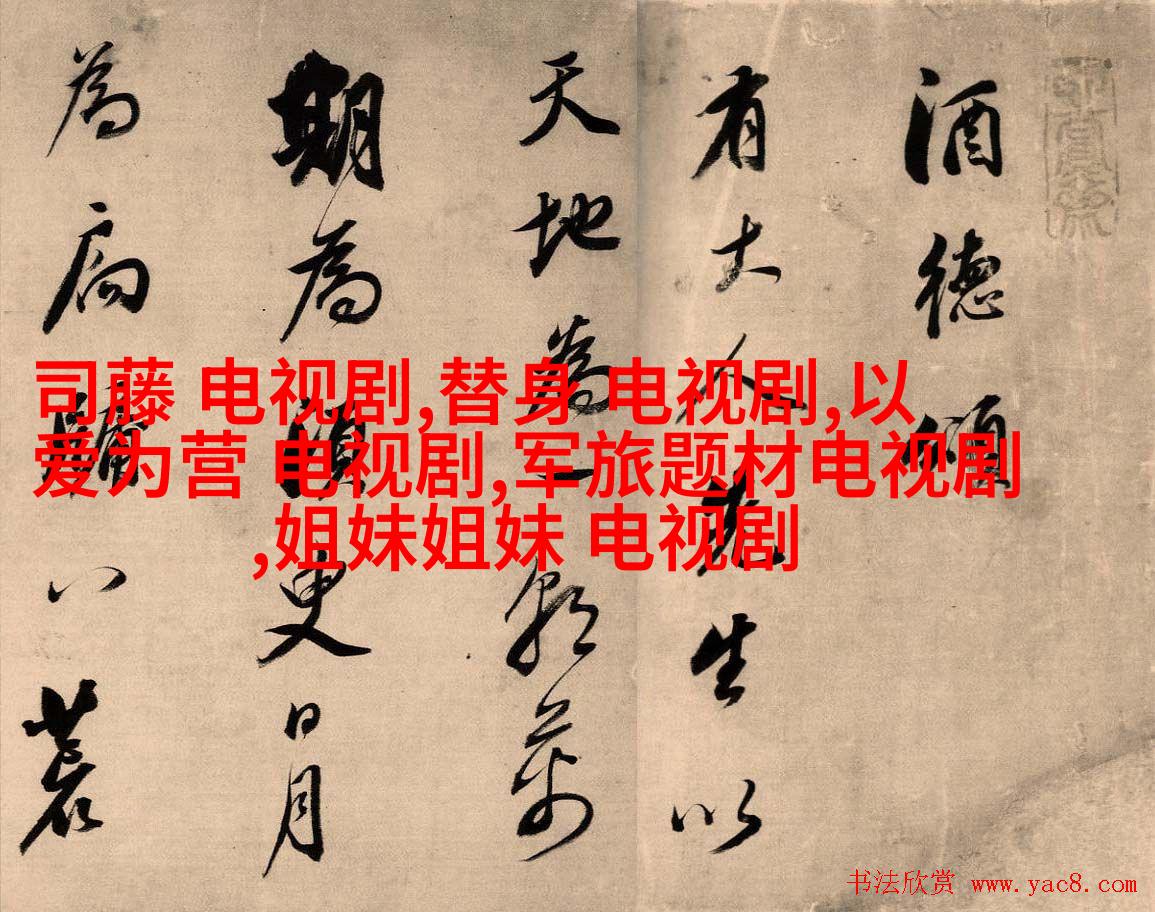 酒德頌
有大人先生以
天地為一朝萬
期為須臾日月
為扃牖八荒
司藤 电视剧,替身 电视剧,以
爱为营 电视剧,军旅题材电视剧
,姐妹姐妹 电视剧
书法欣赏 www.yac8.com